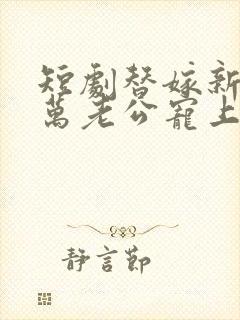 短劇替嫁新
萬老公寵上
靜言節